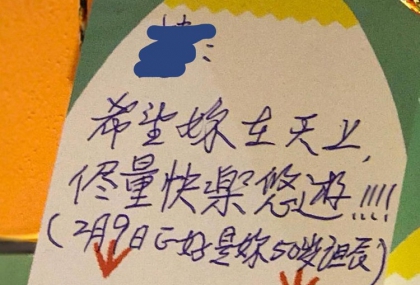 希望妳在天上,
儘量快樂悠遊!!!!
(2月9日正好是妳50歲誕辰)